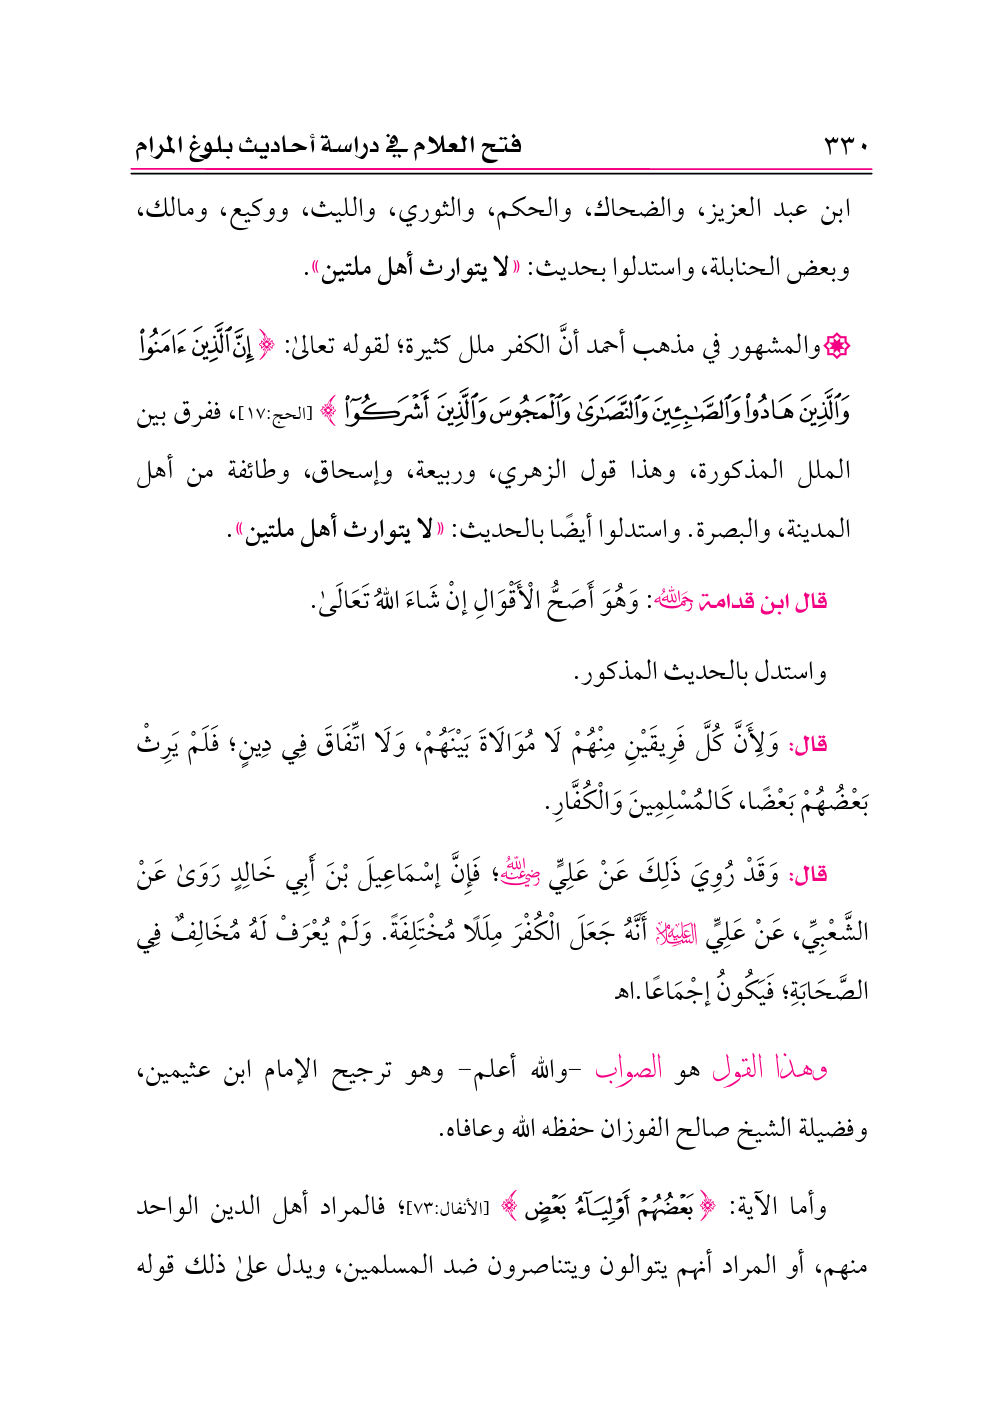 ٣٣٠ فتح العلام في دراسة أحاديث بلوغ المرام
ابن عبد العزيز، والضحاك، والحكم، والثوري، والليث، ووكيع، ومالك،
وبعض الحنابلة، واستدلوا بحديث: «لا يتوارث أهل ملتين».
والمشهور في مذهب أحمد أنَّ الكفر ملل كثيرة؛ لقوله تعالىٰ: ﴿إِنَّ ٱلَّذِينَ ءَامَنُوا۟
وَٱلَّذِينَ هَادُوا۟ وَٱلصَّـٰبِـِٔينَ وَٱلنَّصَـٰرَىٰ وَٱلْمَجُوسَ وَٱلَّذِينَ أَشْرَكُوٓا۟﴾ [الحج:١٧]، ففرق بين
الملل المذكورة، وهذا قول الزهري، وربيعة، وإسحاق، وطائفة من أهل
المدينة، والبصرة. واستدلوا أيضًا بالحديث: «لا يتوارث أهل ملتين».
قال ابن قدامة رحمه الله: وَهُوَ أَصَحُّ الْأَقْوَالِ إنْ شَاءَ اللهُ تَعَالَىٰ.
واستدل بالحديث المذكور.
قال: وَلِأَنَّ كُلَّ فَرِيقَيْنِ مِنْهُمْ لَا مُوَالَاةَ بَيْنَهُمْ، وَلَا اتِّفَاقَ فِي دِينٍ؛ فَلَمْ يَرِثْ
بَعْضُهُمْ بَعْضًا، كَالمُسْلِمِينَ وَالْكُفَّارِ.
قال: وَقَدْ رُوِيَ ذَلِكَ عَنْ عَلِيٍّ رضي الله عنه؛ فَإِنَّ إسْمَاعِيلَ بْنَ أَبِي خَالِدٍ رَوَىٰ عَنْ
الشَّعْبِيِّ، عَنْ عَلِيٍّ عليه السلام أَنَّهُ جَعَلَ الْكُفْرَ مِلَلًا مُخْتَلِفَةً. وَلَمْ يُعْرَفْ لَهُ مُخَالِفٌ فِي
الصَّحَابَةِ؛ فَيَكُونُ إجْمَاعًا.اهـ
وهذا القول هو الصواب -والله أعلم- وهو ترجيح الإمام ابن عثيمين،
وفضيلة الشيخ صالح الفوزان حفظه الله وعافاه.
وأما الآية: ﴿بَعْضُهُمْ أَوْلِيَآءُ بَعْضٍ﴾ [الأنفال:٧٣]؛ فالمراد أهل الدين الواحد
منهم، أو المراد أنهم يتوالون ويتناصرون ضد المسلمين، ويدل علىٰ ذلك قوله